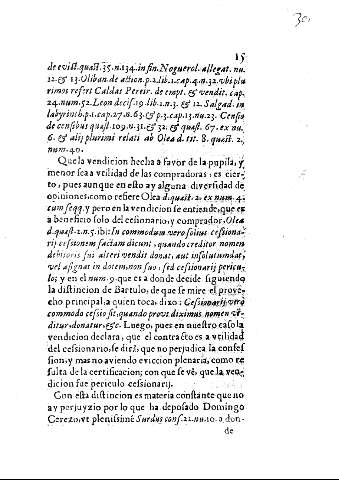 30
15
de evict. quæst. 35. n. 134. in fin. Noguerol. allegat. nu.
12. & 13. Oliban. de action. p. 2. lib. 1. cap. 4. n. 32. vbi plu
rimos refert Caldas Pereir. de empt. & vendit. cap.
24. num. 52. Leon decis. 19. lib. 1. n. 3. & 12. Salgad. in
labyrinth. p. 1. cap. 27. n. 63. & p. 3. cap. 13. nu. 23. Censio
de censibus quæst. 109. n. 31. & 32. & quæst. 67. ex nu.
6. & alij plurimi relati ab Olea d. tit. 8. quæst. 2.
num. 40.
Que la vendicion hecha a favor de la pupila, y
menor sea a vtilidad de las compradoras; es cier-
to, pues aunque en esto ay alguna diversidad de
opiniones, como refiere Olea d. quæst. 2. ex num. 4.
cum seqq. y pero en la vendicion se entiende, que es
a beneficio solo del cessionario, y comprador. Olea
d. quæst. 2. n. 5. ibi: In commodum vero solius cessiona-
rij cessionem factam dicunt, quando creditor nomen
debitoris sui alteri vendit donat, aut insolutum dat,
vel assignat in dotem, non suo, sed cessionarij pericu-
lo; y en el num. 9. que es a donde decide siguiendo
la distincion de Bartulo, de que se mire el prove-
cho principal, a quien toca, dizo: Cessionarij vero
commodo cessio sit, quando prout diximus nomen ve-
ditur, donatur, &c. Luego, pues en nuestro caso la
vendicion declara, que el contracto es a vtilidad
del cessionario, se dirè, que no perjudica la confes
sion, y mas no aviendo eviccion plenaria, como re
sulta de la certificacion; con que se vè, que la ven-
dicion fue periculo cessionarij.
Con esta distincion es materia constante que no
ay perjuyzio por lo que ha deposado Domingo
Cerezo, vt plenissimè Surdus cons. 22. nu. 10. a don-
de